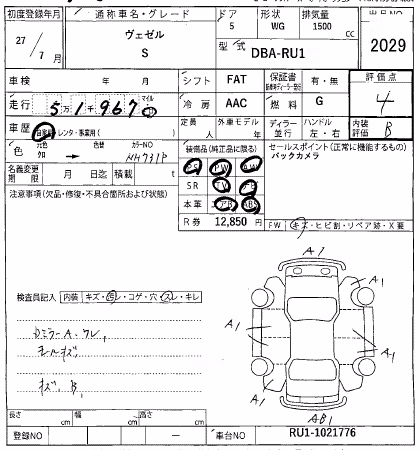 初度登録年月
通称車名・グレード
ドア
形状
排気量
出品NO
27 / 7 月
ヴェゼル
S
5
WG
1500 cc
型式
DBA-RU1
2029
車検 年 月
シフト
FAT
保証書
有・無
評価点
4
走行
5万1千967 マイル
冷房
AAC
燃料
G
車歴
自家用・レンタ・事業用( )
定員 人
外車モデル 年
ディラー 並行
ハンドル 左・右
内装評価
B
色
元色
色替
カラーNO
NH731P
装備品(純正品に限る)
PS PW AW
SR TV
本革 エアB ABS
セールスポイント(正常に機能するもの)
バックカメラ
名義変更期限 月 日迄
積載 t
注意事項(欠品・修復・不具合箇所および状態)
R券
12,850 円
FW
キズ・ヒビ割・リペア跡・X要
検査員記入
内装
キズ・汚レ・コゲ・穴・スレ・キレ
DミラーA、ワレ
キズ、B
A1
A1
A1
A1
A1
A1
AB1
長さ cm
幅 cm
高さ cm
登録NO
—
車台NO
RU1-1021776